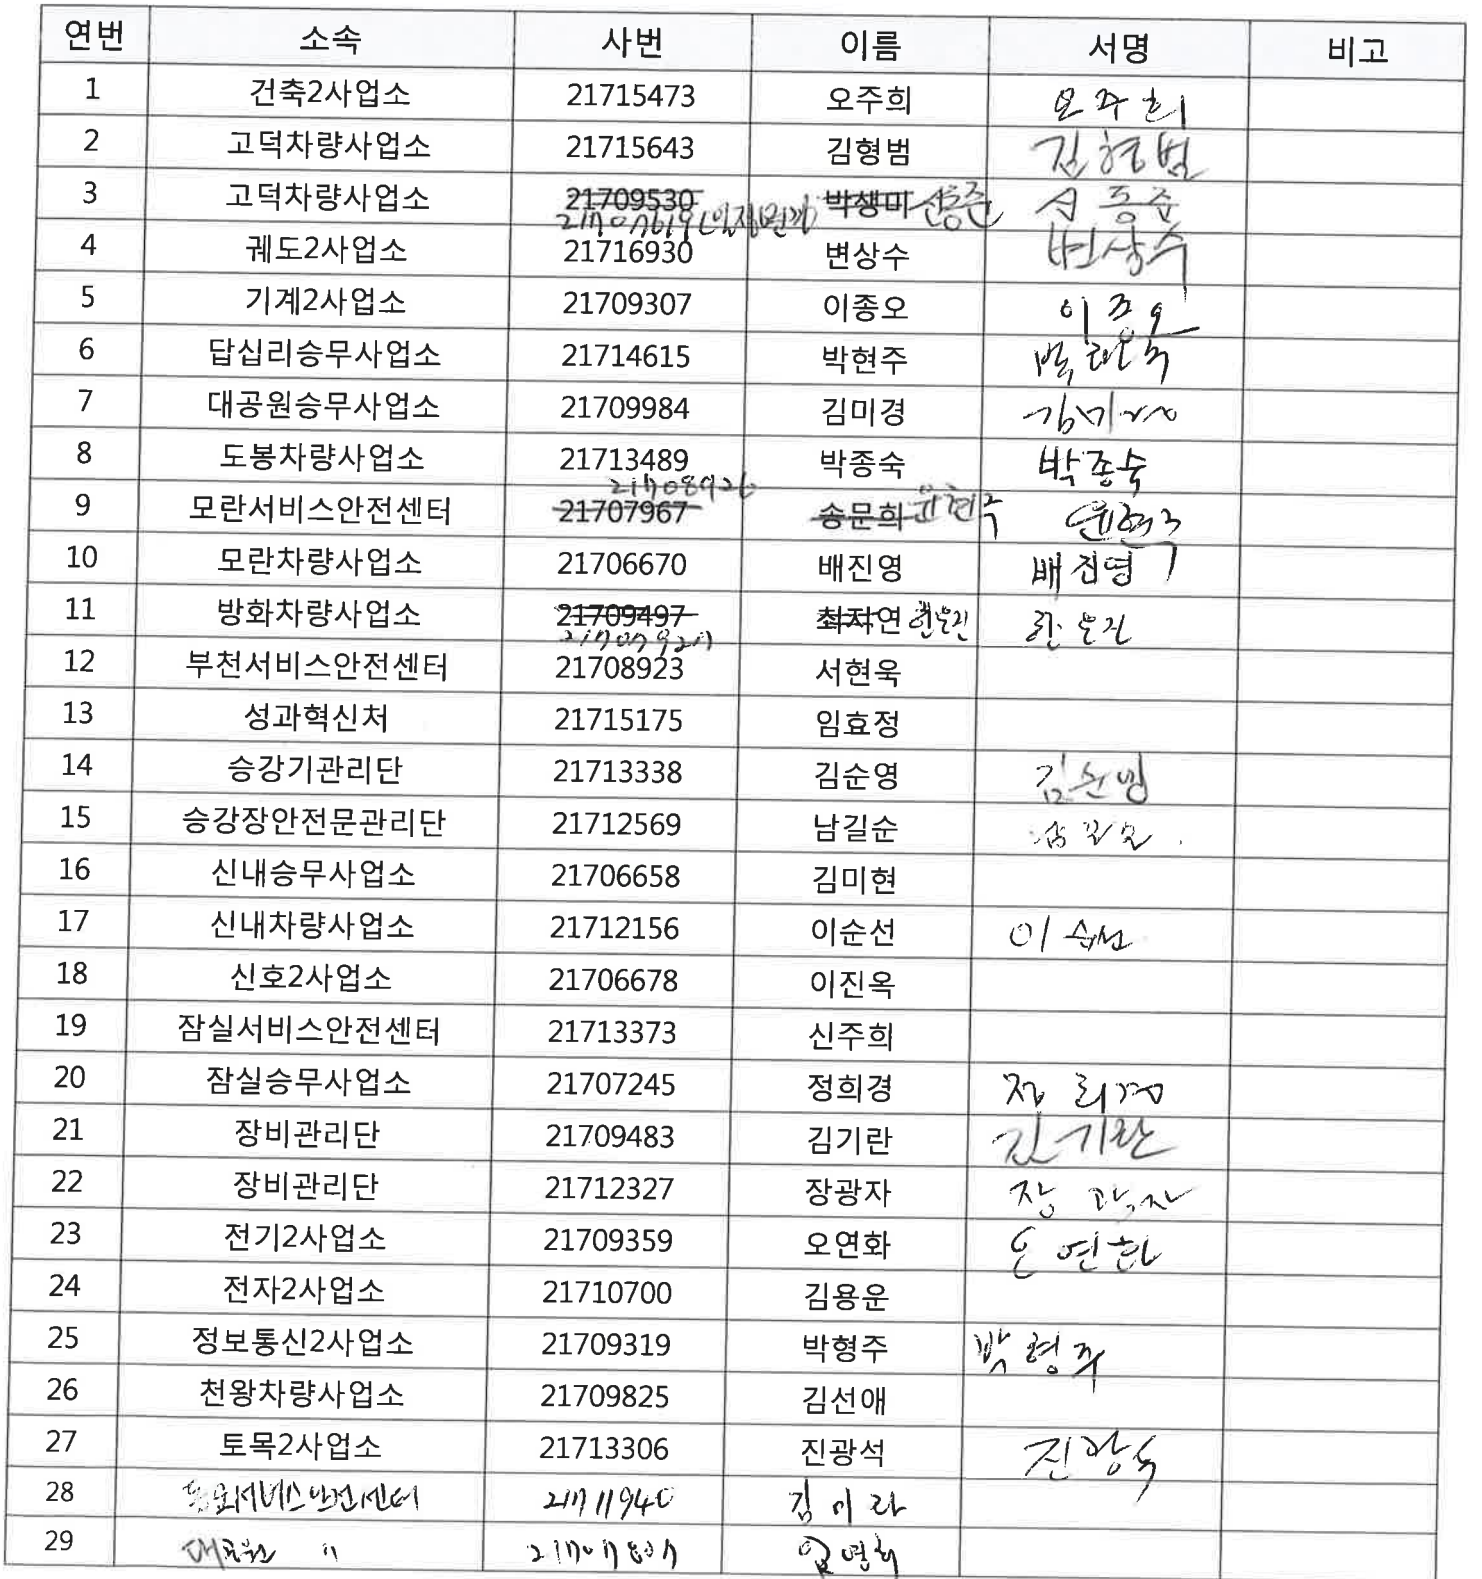 연번 소속 사번 이름 서명 비고
1 건축2사업소 21715473 오주희 오주희
2 고덕차량사업소 21715643 김형범 김형범
3 고덕차량사업소 21709530 박생미
4 궤도2사업소 21716930 변상수 변상수
5 기계2사업소 21709307 이종오 이종오
6 답십리승무사업소 21714615 박현주
7 대공원승무사업소 21709984 김미경 김미경
8 도봉차량사업소 21713489 박종숙 박종숙
21708926
9 모란서비스안전센터 21707967 송문희 윤현주 윤현주
10 모란차량사업소 21706670 배진영 배진영
11 방화차량사업소 21709497 최자연
12 부천서비스안전센터 21708923 서현욱
13 성과혁신처 21715175 임효정
14 승강기관리단 21713338 김순영 김순영
15 승강장안전문관리단 21712569 남길순
16 신내승무사업소 21706658 김미현
17 신내차량사업소 21712156 이순선 이순선
18 신호2사업소 21706678 이진옥
19 잠실서비스안전센터 21713373 신주희
20 잠실승무사업소 21707245 정희경 정희경
21 장비관리단 21709483 김기란 김기란
22 장비관리단 21712327 장광자 장광자
23 전기2사업소 21709359 오연화 오연화
24 전자2사업소 21710700 김용운
25 정보통신2사업소 21709319 박형주 박형주
26 천왕차량사업소 21709825 김선애
27 토목2사업소 21713306 진광석 진광석
28 21711940 김미라
29 대공원 〃 21707807